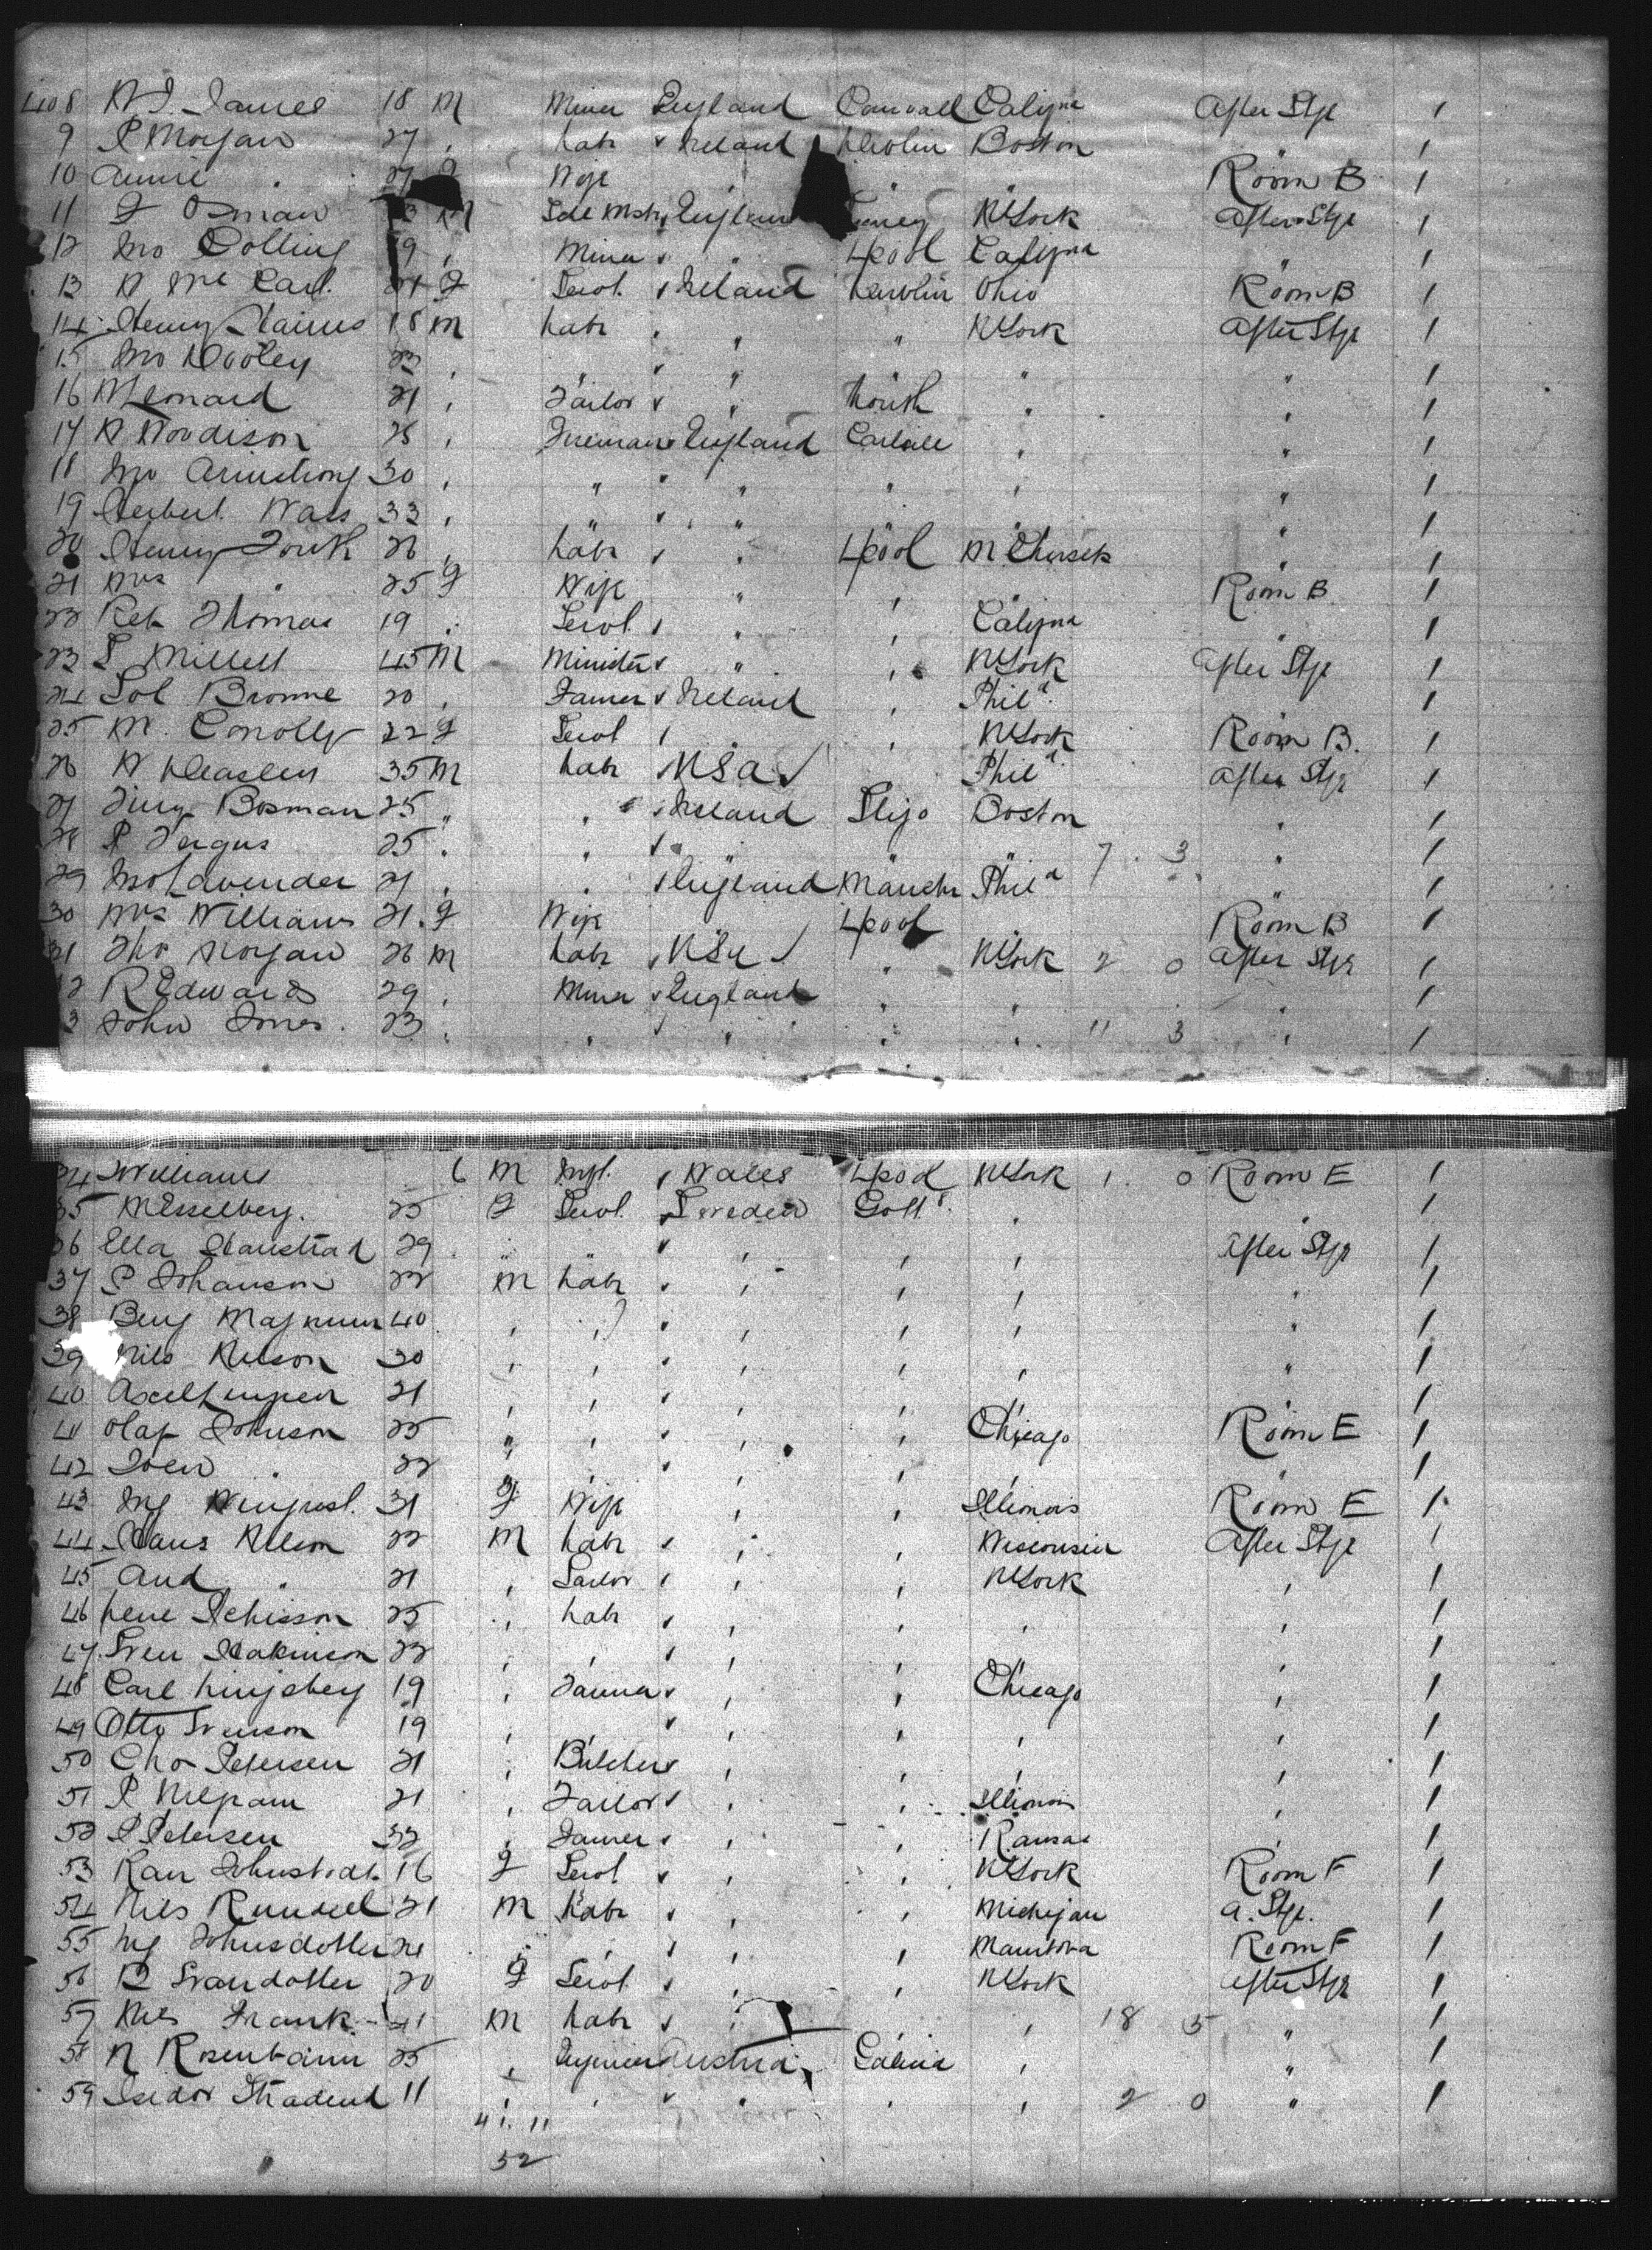 408 W J James 18 M Miner England Cornwall Califna After Stge 1
9 P Morgan 27 " Labr " Ireland Dublin Boston " 1
10 Annie " 27 F Wife " " " Room B 1
11 F Osman 3 M England N York After Stge 1
12 Jno Colling 19 " Miner " " Lpool Califna " 1
13 Mc Carl 21 F Servt " Ireland Dublin Ohio Room B 1
14 Henry 18 M Labr " " " N York After Stge 1
15 Jno Dooley 23 " " " " " " " 1
16 M Leonard 21 " Tailor " " Louth " " 1
17 W Woodison 25 " Fireman " England Carlisle " " 1
18 Jno Armstrong 30 " " " " " " " 1
19 Herbert Wass 33 " " " " " " " 1
20 Henry 26 " Labr " " Lpool M. Chusets " 1
21 Mrs " 25 F Wife " " " Room B 1
22 Thomas 19 " Servt " " " Califna " 1
23 Millett 45 M Minister " " " N York After Stge 1
24 Sol Browne 20 " Farmer " Ireland " Phila " 1
25 M. Conolly 22 F Servt " " " N York Room B. 1
26 W 35 M Labr " U S a Phila After Stge 1
27 Bosman 25 " " " Ireland Sligo Boston " 1
28 P Fergus 25 " " " " " " 7 . 3 " 1
29 Jno Lavender 21 " " " England Manchr Phila " 1
30 Mrs Williams 21 F Wife Lpool " Room B 1
31 Tho Morgan 26 M Labr " U S a " N York 2 0 After Stge 1
2 R Edwards 29 " Miner " England " " " 1
3 John Jones 23 " " " " " " 11 3 " 1
34 Williams 6 M Inft. " Wales Lpool N York 1. 0 Room E 1
35 M Esselberg. 25 F Servt. " Sweden Gottg " " 1
36 Ella 29 " " " " " " After Stge 1
37 P Johanson 22 M Labr " " " " " 1
38 Beng Magnum 40 " " " " " " " 1
39 Nils Nelson 30 " " " " " " " 1
40 Axel 21 " " " " " " " 1
41 Olaf Johnson 25 " " " " " Chicago Room E 1
42 " 22 " " " " " " " 1
43 Ing 31 F Wife " " Illinois Room E 1
44 Hans Nelson 22 M Labr " " " Wisconsin After Stge 1
45 And " 21 " Sailor " " " N York " 1
46 25 " Labr " " " " " 1
47 Sven Hakinson 22 " " " " " " " 1
48 Carl Lingsberg 19 " Farmer " " " Chicago " 1
49 Otto Svenson 19 " " " " " " " 1
50 Chr Petersen 21 " Butcher " " " " " 1
51 P 21 " Tailor " " " Illinois " 1
52 P Petersen 32 " Farmer " " " Kansas " 1
53 Kari 16 F Servt " " " N York Room F 1
54 Nils Rundell 21 M Labr " " " Michigan a. Stge. 1
55 Ing Johnsdotter 21 " " " " " Manitoba Room F 1
56 Svandotter 20 F Servt " " " N York After Stge 1
57 Nils Frank 21 M Labr " " " " 18 5 " 1
58 N Rosenbaum 25 " Austria Galicia " " 1
59 Isidor 11 " " " " " " 2 0 " 1
41. 11
52